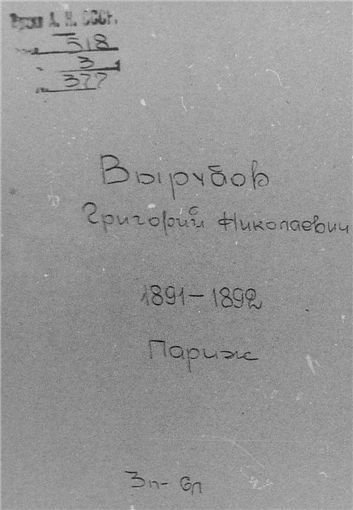 А. Н. СССР.
518
3
377
Вырубов
Григорий Николаевич
1891-1892
Париж
3п- 6л